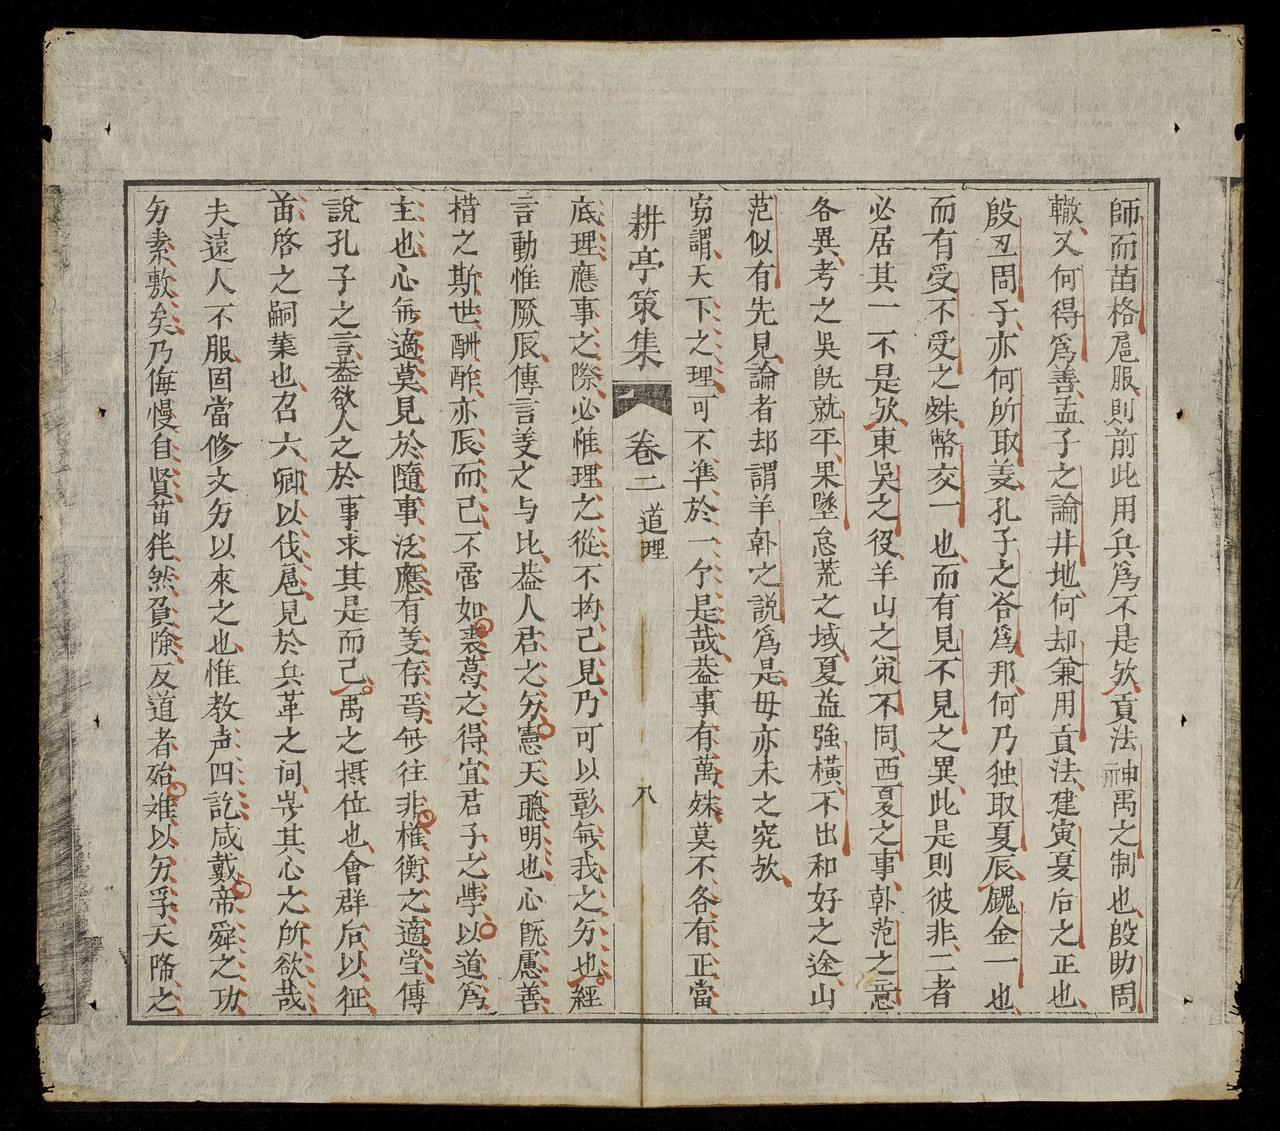 師而苗格扈服則前此用兵爲不是欤貢法神禹之制也殷助周
轍又何得爲善孟子之論井地何却兼用貢法建寅夏后之正也
殷丑周子亦何所取羙孔子之答爲邦何乃独取夏辰餽金一也
而有受不受之姝幣交一也而有見不見之異此是則彼非二者
必居其一一不是欤東吳之役羊山之策不同西夏之事韩范之意
各異考之吳旣就平果墜怠荒之域夏益強橫不出和好之途山
范似有先見論者却謂羊韩之説爲是毋亦未之究欤
窃謂天下之理可不準於一尓是哉葢事有萬姝莫不各有正當
耕亭策集 卷二 道理 八
底理應事之際必惟理之從不拘己見乃可以彰無我之分也經
言動惟厥辰傳言羙之与比葢人君之分憲天聦明也心旣慮善
措之斯世酬酢亦辰而已不啻如裘葛之得宜君子之學以道爲
主也心無適莫見於隨事泛應有羙存焉無往非權衡之適堂傳
說孔子之言葢欲人之於事求其是而已禹之摂位也會群后以征
苗啓之嗣葉也召六卿以伐扈見於兵革之间岂其心之所欲哉
夫遠人不服固當修文分以來之也惟教声四訖咸戴帝舜之功
分素敷矣乃侮慢自賢苗㐌然負險反道者殆难以分孚天降之